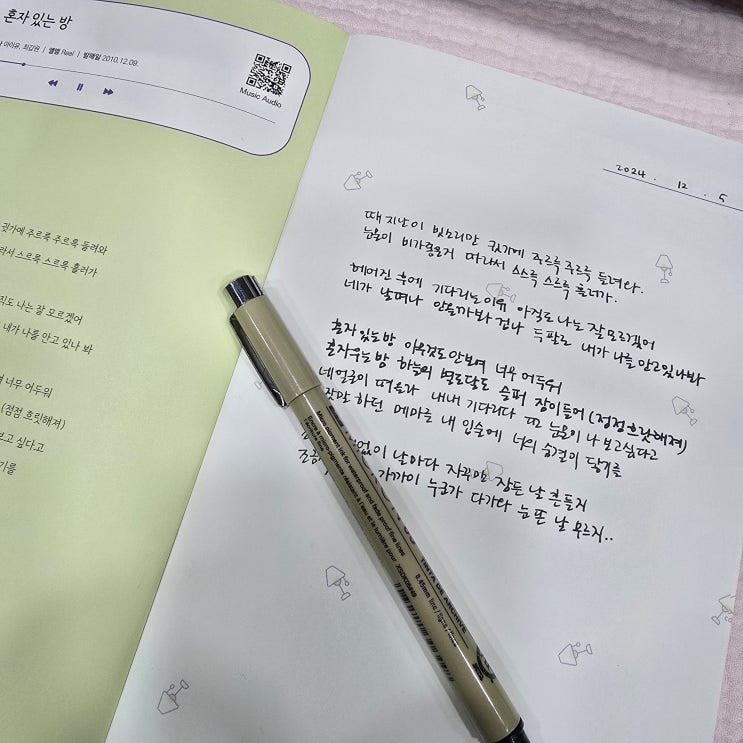 혼자 있는 방
아이유, 최갑원 | 앨범 Real | 발매일 2010.12.09.
Music Audio
귓가에 주르륵 주르륵 들려와
라서 스르륵 스르륵 흘러가
직도 나는 잘 모르겠어
내가 나를 안고 있나 봐
너무 어두워
(점점 흐릿해져)
보고 싶다고
기를
2024. 12. 5
때 지난 이 빗소리만 귓가에 주르륵 주르륵 들려와.
눈물이 비가 따라서 스르륵 스르륵 흘러가.
헤어진 후에 기다리는 이유 아직도 나는 잘 모르겠어
네가 날 떠나 않을까봐 겁나 두 팔로 내가 나를 안고있나봐
혼자있는방 아무것도 안보여 너무 어두워
혼자우는방 하늘의 별도 달도 슬퍼 잠이들어 (점점흐릿해져)
네 얼굴이 떠올라 내내 기다리다 또 눈물이 나 보고싶다고
잠깐 하던 메마른 내 입술에 너의 숨결이 닿기를
없이 날마다 자꾸만 잠든 날 흔들지
조금 가까이 누군가 다가와 눈 뜬 날 부르지..
Micro-pigment ink for waterproof and fade proof fine lines
Encre à micro-pigments résistant à l'eau et la lumière pour
l'écriture fine
XSDK05#49
TINTA DE ARCHIVE
0.45mm line